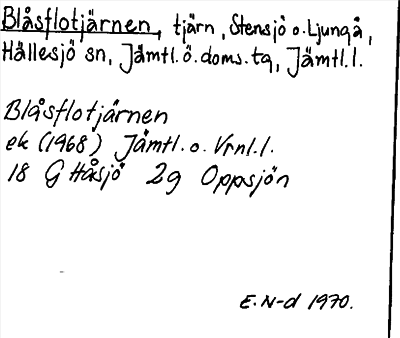 Blåsflotjärnen, tjärn, Stensjö o. Ljungå,
Hällesjö sn, Jämtl. ö. doms. tg, Jämtl. l.
Blåsflotjärnen
ek (1968) Jämtl. o. Vrnl. l.
18 G Håsjö 2g Oppsjön
E. N-d 1970.